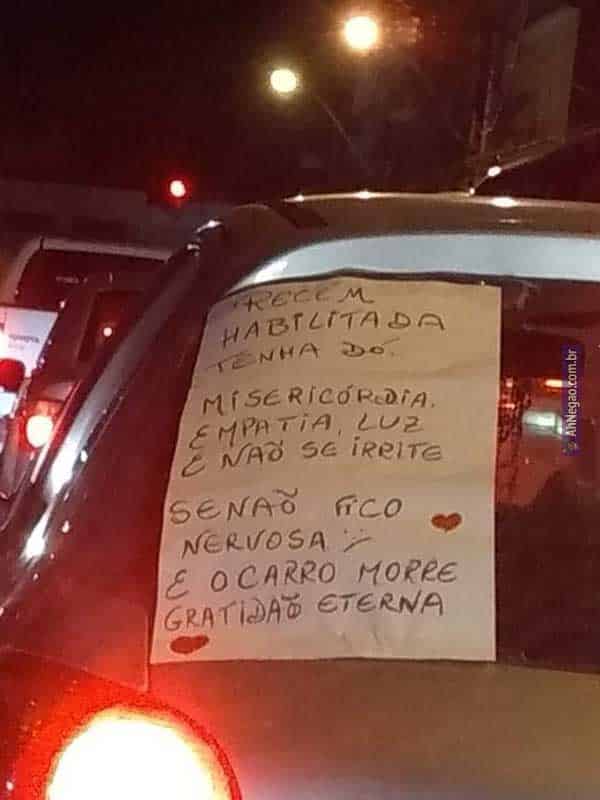 RECÉM
HABILITADA
TENHA DÓ.
MISERICÓRDIA,
EMPATIA, LUZ
E NÃO SE IRRITE
SENÃO FICO
NERVOSA :/
E O CARRO MORRE
GRATIDÃO ETERNA
AhNegao.com.br